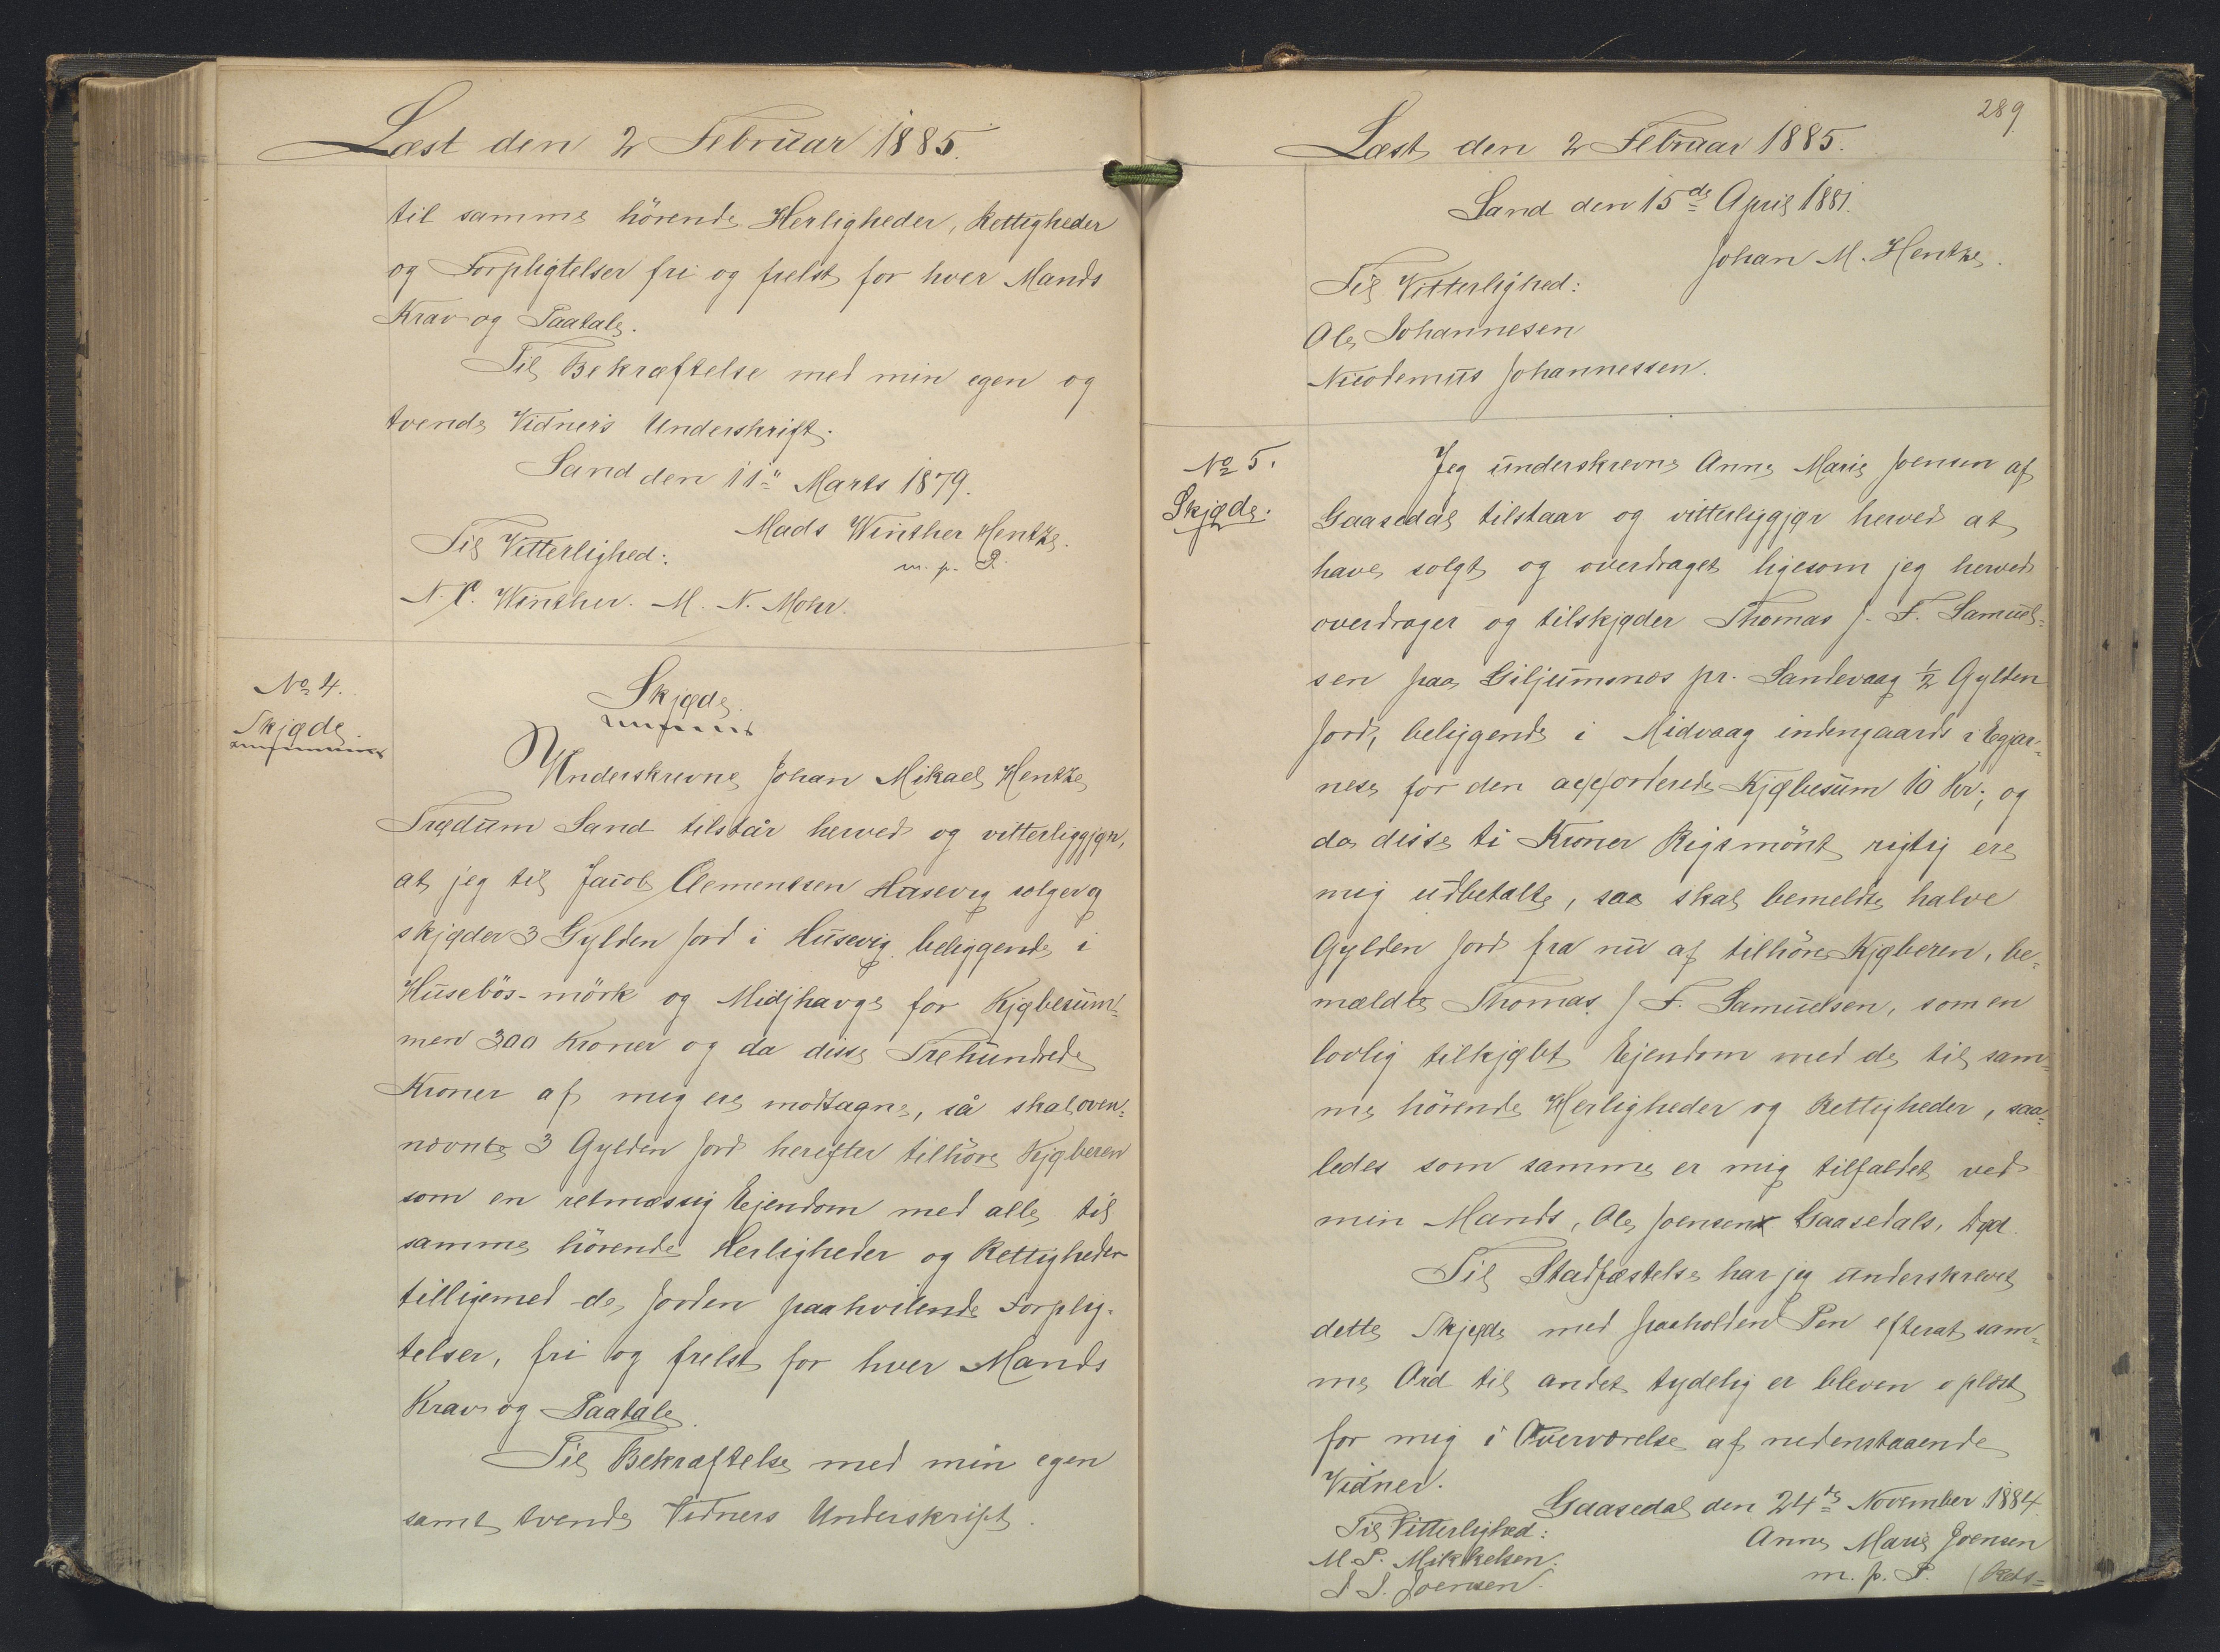 Læst den 2 Februar 1885.
til samme hörende Herligheder, Rettigheder
og Forpligtelser fri og frelst for hver Mands
Krav og Paatale.
Til Bekræftelse med min egen og
tvende Vidners Underskrift.
Sand den 11" Marts 1879.
Mads Winther Hentze.
m. p. P.
Til Vitterlighed:
N. P. Winther. M. N. Mohr.
No 4.
Skjøde.
Skjøde.
Underskrevne Johan Mikael Hentze
Trødum Sand tilstår herved og vitterliggjør,
at jeg til Jacob Clementsen Husevig solger og
skjøder 3 Gylden Jord i Husevig beliggende i
Husebös-mörk og Midjhavge for Kjøbesum-
men 300 Kroner og da disse Trehundrede
Kroner af mig ere modtagne, så skal oven-
nævnte 3 Gylden Jord herefter tilhöre Kjøberen
som en retmæssig Ejendom med alle til
samme hörende Herligheder og Rettigheder
tilligemed de Jorden paahvilende Forplig-
telser, fri og frelst for hver Mands
Krav og Paatale.
Til Bekræftelse med min egen
samt tvende Vidners Underskrift.
289
Læst den 2 Februar 1885.
Sand den 15de April 1881.
Johan M. Hentze.
Til Vitterlighed:
Ole Johannesen
Nicodemus Johannessen.
No 5.
Skjøde.
Jeg underskrevne Anne Marie Joensen af
Gaasedal tilstaar og vitterliggjør herved at
have solgt og overdraget ligesom jeg herved
overdrager og tilskjøder Thomas J. F. Samuel-
sen paa Giljumnæs pr. Sandevaag 1/2 Gylden
Jord, beliggende i Midvaag indengaards i Egjar-
nese for den accorderede Kjøbesum 10 Kr.; og
da disse ti Kroner Rigsmönt rigtig ere
mig udbetalte, saa skal bemeldte halve
Gylden Jord fra nu af tilhöre Kjøberen, be-
mældte Thomas J. F. Samuelsen, som en
lovlig tilkjøbt Ejendom med de til sam-
me hörende Herligheder og Rettigheder, saa-
ledes som samme er mig tilfaldet ved
min Mands, Ole Joensen Gaasedals, Død.
Til Stadfæstelse har jeg underskrevet
dette Skjøde med paaholden Pen efterat sam-
me Ord til andet tydelig er bleven oplæst
for mig i Overværelse af nedenstaaende
Vidner.
Gaasedal den 24de November 1884.
Til Vitterlighed:
Anne Marie Joensen
M. P. Mikkelsen.
m. p. P.
J. J. Joensen.